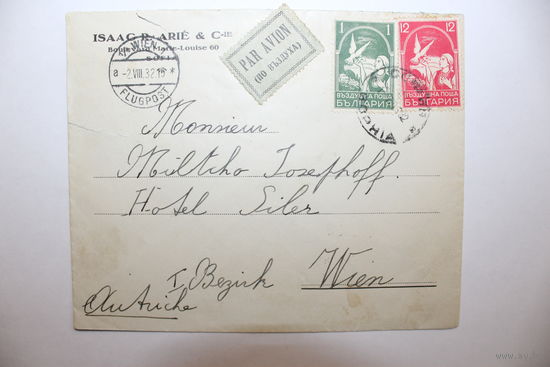 ISAAC R. ARIÉ & Cie
Boulevard Marie-Louise 60
SOFIA
WIEN
8 -2.VIII.32.16 *
FLUGPOST
PAR AVION
(ПО ВЪЗДУХА)
1 1
ВЪЗДУШНА ПОЩА
БЪЛГАРИЯ
12 12
ВЪЗДУШНА ПОЩА
БЪЛГАРИЯ
SOPHIA
Monsieur
Miltcho Josephoff.
Hotel Siler
I. Bezirk Wien
Autriche